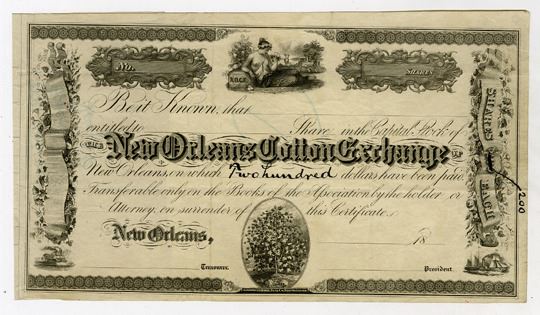 No.
N.O.C.E.
SHARES
Be it Known, that
entitled to Share in the Capital Stock of
THE New Orleans Cotton Exchange OF
New Orleans, on which Two hundred dollars have been paid
Transferable only on the Books of the Association by the holder or
Attorney, on surrender of this Certificate.
New Orleans, 18
Treasurer. President.
SHARES
EACH
200